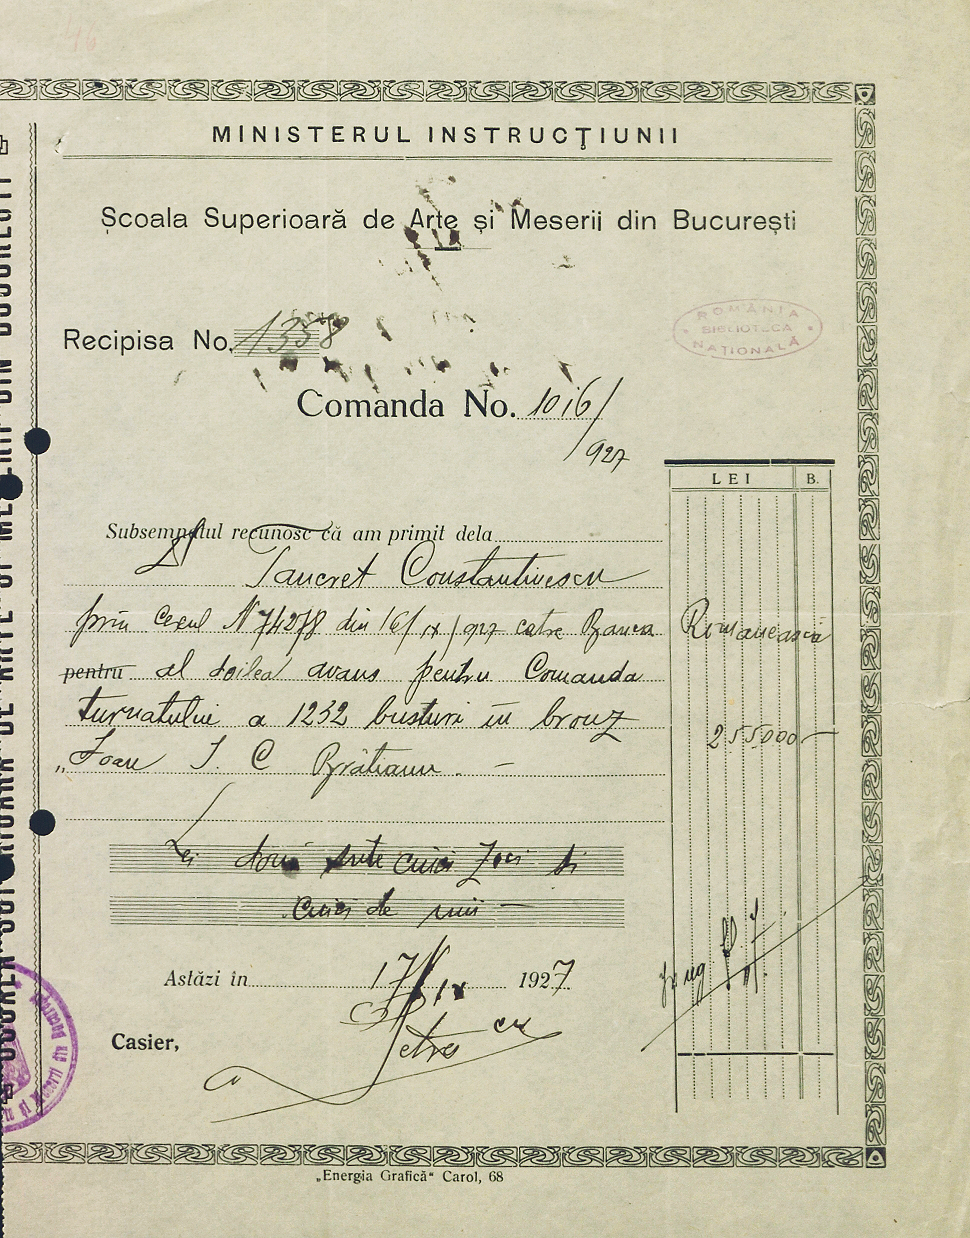 MINISTERUL INSTRUCŢIUNII
Școala Superioară de Arte și Meserii din București
ROMÂNIA
BIBLIOTECA
NAŢIONALĂ
Recipisa No. 1358
Comanda No. 1016/
927
LEI B.
Subsemnatul recunosc că am primit dela
Tancret Constantinescu
prin cecul N 74278 din 16/IX/927 catre Banca Romaneasca
pentru al doilea avans pentru Comanda
turnatului a 1232 busturi in bronz 255.000 —
„Ioan I. C. Brătianu. —
Lei două sute cinci zeci și
cinci de mii —
Astăzi în 17/IX 1927
Casier,
„Energia Grafică" Carol, 68